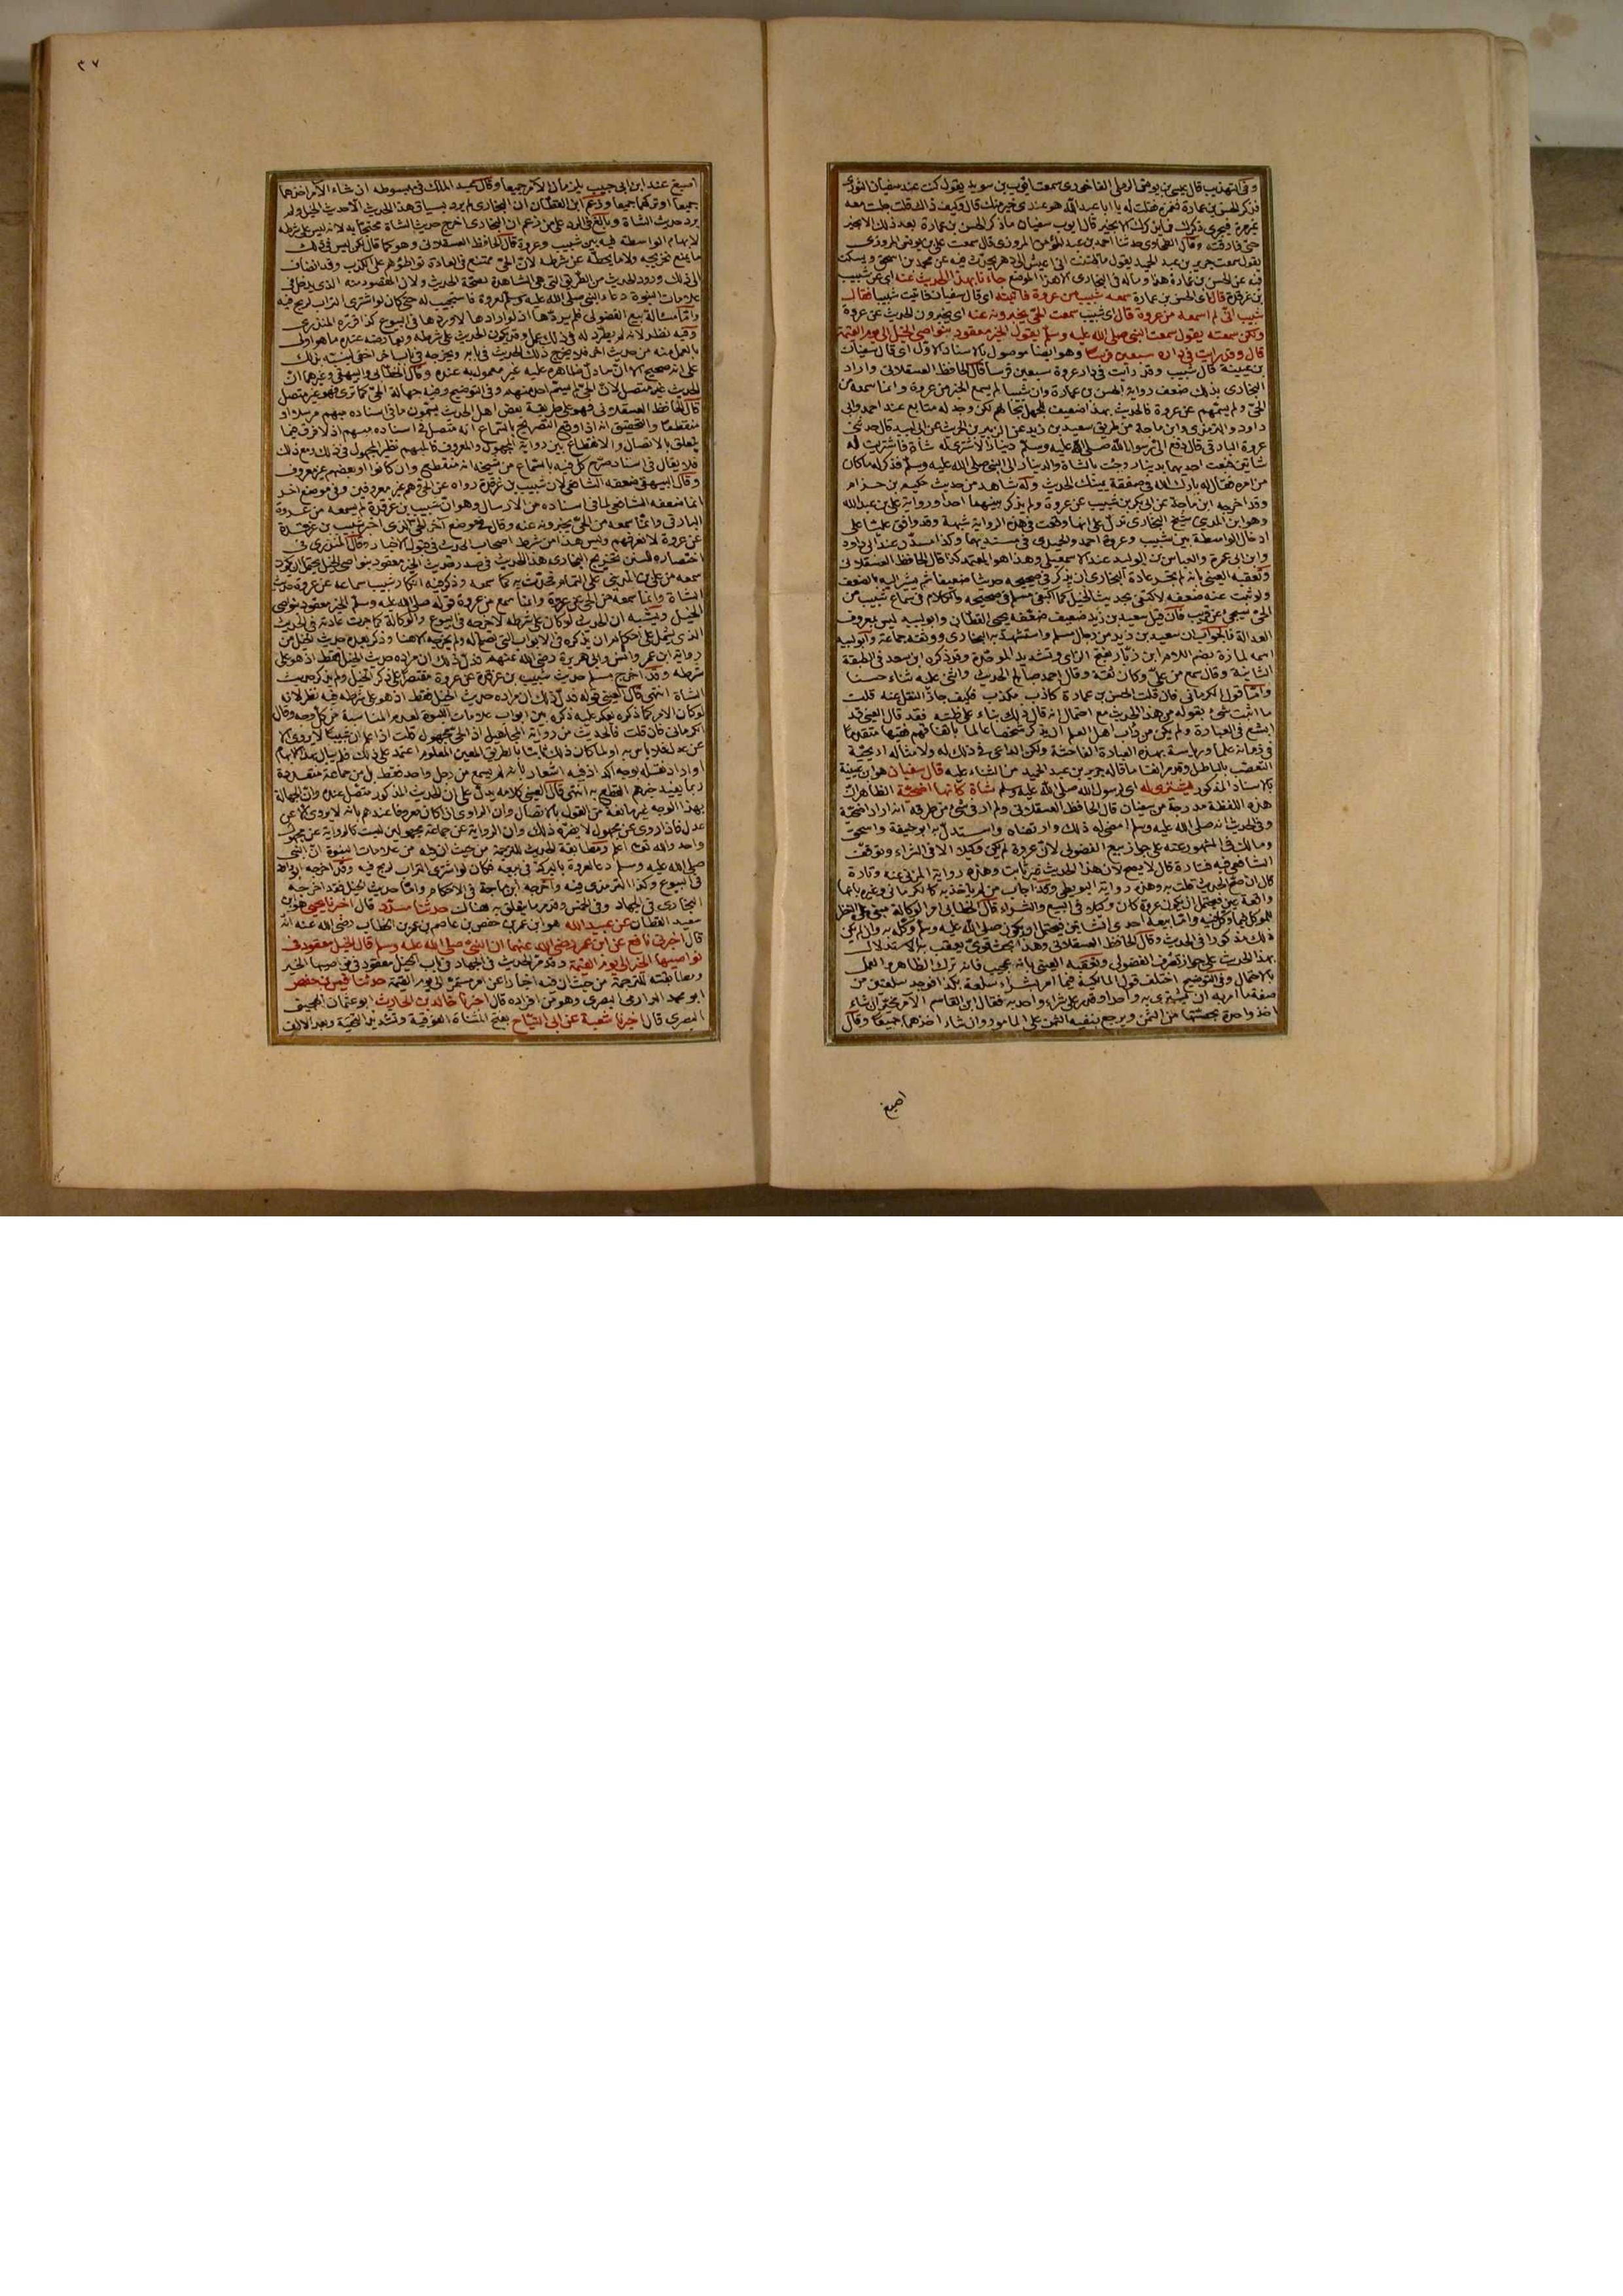 وفي التهذيب قال عيسى بن يونس الرملي الفاخوري سمعت ايوب بن سويد يقول كنت عند سفيان الثوري
فذكر الحسن بن عمارة فغمزه فقلت له يا ابا عبد الله هو عندي خير منك قال وكيف ذلك قلت جلست معه
غير مرة فيجري ذكرك فما يذكرك الا بخير قال ايوب سفيان ما ذكر الحسن بن عمارة بعد ذلك الا بخير
حتى فارقته وقال الطحاوي حدثنا احمد بن عبد المؤمن المروزي قال سمعت علي بن يونس المروزي
يقول سمعت جرير بن عبد الحميد يقول ما ظننت اني اعيش الى دهر يحدث فيه عن محمد بن اسحق ويسكت
فيه عن الحسن بن عمارة هذا وما له في البخاري الا هذا الموضع جاءنا بهذا الحديث عنه اي عن شبيب
بن غرقدة قال اي الحسن بن عمارة سمعه شبيب من عروة فاتيته اي قال سفيان فاتيت شبيبا فقال
شبيب اني لم اسمعه من عروة قال اي شبيب سمعت الحي يخبرونه عنه اي يخبرون الحديث عن عروة
ولكن سمعته يقول سمعت النبي صلى الله عليه وسلم يقول الخير معقود بنواصي الخيل الى يوم القيمة
قال وقد رايت في داره سبعين فرسا وهو ايضا موصول بالاسناد الاول اي قال سفيان
بن عيينة قال شبيب وقد رأيت في دار عروة سبعين فرسا قال الحافظ العسقلاني واراد
البخاري بذلك ضعف رواية الحسن بن عمارة وان شبيبا لم يسمع الخبر من عروة وانما سمعه من
الحي ولم يسمهم عن عروة فالحديث بهذا ضعيف للجهل بحالهم لكن وجد له متابع عند احمد وابي
داود والترمذي وابن ماجة من طريق سعيد بن زيد عن الزبير بن الخريت عن ابي لبيد قال حدثني
عروة البارقي قال دفع الي رسول الله صلى الله عليه وسلم دينارا لاشتري له شاة فاشتريت له
شاتين فبعت احديهما بدينار وجئت بالشاة والدينار الى النبي صلى الله عليه وسلم فذكر له ما كان
من امره فقال له بارك الله في صفقة يمينك الحديث وله شاهد من حديث حكيم بن حزام
وقد اخرجه ابن ماجة عن ابي بكر بن شبيب عن عروة ولم يذكر بينهما احدا ورواية علي بن عبد الله
وهو ابن المديني شيخ البخاري تدل على انها وقعت في هذه الرواية شبهة وقد وافق عليا على
ادخال الواسطة بين شبيب وعروة احمد والحميدي في مسنديهما وكذا مسدد عند ابي داود
وابن ابي عمر والعباس بن الوليد عند الاسمعيلي وهذا هو المعتمد كذا قال الحافظ العسقلاني
وتعقبه العيني بانه لم تجر عادة البخاري ان يذكر في صحيحه حديثا ضعيفا ثم يشير اليه بالضعف
ولو ثبت عنه ضعفه لاكتفى بحديث الخيل كما اكتفى مسلم في صحيحه والكلام في سماع شبيب من
الحي سيجيء عن قريب فان قيل سعيد بن زيد ضعيف ضعفه يحيى القطان وابو لبيد ليس بمعروف
العدالة فالجواب ان سعيد بن زيد من رجال مسلم واستشهد به البخاري ووثقه جماعة وابو لبيد
اسمه لمازة بضم اللام ابن زبار بفتح الزاي وتشديد الموحدة وقد ذكره ابن سعد في الطبقة
الثانية وقال سمع من علي وكان ثقة وقال احمد صالح الحديث واثنى عليه ثناء حسنا
واما قول الكرماني فان قلت الحسن بن عمارة كاذب مكذب فكيف جاز النقل عنه قلت
ما اثبت شيء بقوله من هذا الحديث مع احتمال انه قال ذلك بناء على ظنه فقد قال العيني قد
ابشع في العبارة ولم يكن من داب اهل العلم ان يذكر شخصا عالما باتفاقهم فقيها متقدما
في زمانه علما ورياسة بهذه العبارة الفاحشة ولكن الداعي في ذلك له ولامثاله اريحية
التعصب بالباطل وقد مر آنفا ما قاله جرير بن عبد الحميد من الثناء عليه قال سفيان هو ابن عيينة
بالاسناد المذكور يشتري له اي لرسول الله صلى الله عليه وسلم شاة كانها اضحية الظاهر ان
هذه اللفظة مدرجة من سفيان قال الحافظ العسقلاني ولم ار في شيء من طرقه انه اراد اضحية
وفي الحديث انه صلى الله عليه وسلم امضى له ذلك وارتضاه واستدل به ابو حنيفة واسحق
ومالك في المشهور عنه على جواز بيع الفضولي لان عروة لم يكن وكيلا الا في الشراء وتوقف
الشافعي فيه فتارة قال لا يصح لان هذا الحديث غير ثابت وهذه رواية المزني عنه وتارة
قال ان صح الحديث قلت به وهذه رواية البويطي وقد اجاب من لم ياخذ به كالكرماني وغيره بانها
واقعة عين فيحتمل ان يكون عروة كان وكيلا في البيع والشراء قال الخطابي امر الوكالة مبني على النظر
للموكل
ذلك مذكورا في الحديث وقال الحافظ العسقلاني وهذا بحث قوي يعقب به الاستدلال
بهذا الحديث على جواز تصرف الفضولي وتعقبه العيني بانه عجيب فانه ترك الظاهر والعمل
بالاحتمال وفي التوضيح اختلف قول المالكية فيما امر بشراء سلعة بكذا فوجد سلعتين من
صفة ما امر به ان يشتري به واحدا وقدر على شراء واحد به فقال ابن القاسم الآمر مخير ان شاء
اخذ واحدة بحصتها من الثمن ويرجع ببقية الثمن على المامور وان شاء اخذهما جميعا وقال
اصبغ
٣٧
اصبغ عند ابن ابي حبيب يلزمان الآمر جميعا وقال عبد الملك في مبسوطه ان شاء الآمر اخذهما
جميعا او تركهما جميعا وزعم ابن القطان ان البخاري لم يرد بسياق هذا الحديث الا حديث الخيل ولم
يرد حديث الشاة وبالغ في الرد على من زعم ان البخاري اخرج حديث الشاة محتجا به لانه ليس على شرطه
لابهام الواسطة فيه بين شبيب وعروة قال الحافظ العسقلاني وهو كما قال لكن ليس في ذلك
ما يمنع تخريجه ولا ما يحطه عن شرطه لان الحي يمتنع في العادة تواطؤهم على الكذب وقد انضاف
الى ذلك ورود الحديث من الطريق التي هي الشاهدة لصحة الحديث ولان المقصود منه الذي يدخل في
علامات النبوة دعاء النبي صلى الله عليه وسلم لعروة فاستجيب له حتى كان لو اشترى التراب لربح فيه
واما مسالة بيع الفضولي فلم يردها اذ لو ارادها لاوردها في البيوع كذا قرره المنذري
وفيه نظر لانه لم يطرد له في ذلك عمل وقد يكون الحديث على شرطه ويعارضه عنده ما هو اولى
بالعمل منه من حديث آخر فلا يخرج ذلك الحديث في بابه ويخرجه في باب آخر اخفى لينبه بذلك
على انه صحيح الا ان ما دل ظاهره عليه غير معمول به عنده وقال الخطابي والبيهقي وغيرهما ان
الحديث غير متصل لان الحي لم يسم احد منهم وفي التوضيح وفيه جهالة الحي كما ترى فهو غير متصل
قال الحافظ العسقلاني فهو على طريقة بعض اهل الحديث يسمون ما في اسناده مبهم مرسلا او
منقطعا والتحقيق انه اذا وقع التصريح بالسماع انه متصل في اسناده مبهم اذ لا فرق فيما
يتعلق بالاتصال والانقطاع بين رواية المجهول والمعروف فالمبهم نظير المجهول في ذلك ومع ذلك
فلا يقال في اسناد صرح كل فيه بالسماع من شيخه انه منقطع وان كانوا او بعضهم غير معروف
وقال البيهقي ضعفه الشافعي لان شبيب بن غرقدة رواه عن الحي وهم غير معروفين وفي موضع اخر
انما ضعفه الشافعي لما في اسناده من الارسال وهو ان شبيب بن غرقدة لم يسمعه من عروة
البارقي وانما سمعه من الحي يخبرونه عنه وقال في موضع آخر الحي الذي اخبر شبيب بن غرقدة
عن عروة لا نعرفهم وليس هذا من شرط اصحاب الحديث في قبول الاخبار وقال المنذري في
اختصاره للسنن تخريج البخاري هذا الحديث في صدر حديث الخير معقود بنواصي الخيل يحتمل ان يكون
سمعه من علي بن المديني على التمام فحدث به كما سمعه وذكر فيه انكار شبيب سماعه عن عروة حديث
الشاة وانما سمعه من الحي عن عروة وانما سمع من عروة قوله صلى الله عليه وسلم الخير معقود بنواصي
الخيل ويشبه ان الحديث لو كان على شرطه لاخرجه في البيوع والوكالة كما جرت عادته في الحديث
الذي يشتمل على احكام ان يذكره في الابواب التي تصلح له ولم يخرجه الا هنا وذكر بعده حديث الخيل من
رواية ابن عمر وانس وابي هريرة رضي الله عنهم فدل ذلك ان مراده حديث الخيل فقط اذ هو على
شرطه وقد اخرج مسلم حديث شبيب بن غرقدة عن عروة مقتصرا على ذكر الخيل ولم يذكر حديث
الشاة انتهى قال العيني قوله فدل ذلك ان مراده حديث الخيل فقط اذ هو على شرطه فيه نظر لانه
لو كان الامر كما ذكره يعكر عليه ذكره بين ابواب علامات النبوة لعدم المناسبة من كل وجه وقال
الكرماني فان قلت فالحديث من رواية المجاهيل اذ الحي مجهول قلت اذا علم ان شبيبا لا يروي الا
عن عدل فلا باس به او لما كان ذلك ثابتا بالطريق المعين المعلوم اعتمد على ذلك فلم يبال بهذا الابهام
او اراد نقله بوجه آكد اذ فيه اشعار بانه لم يسمع من رجل واحد فقط بل من جماعة متعددة
ربما يفيد خبرهم القطع به انتهى قال العيني كلامه يدل على ان الحديث المذكور متصل عنده وان الجهالة
بهذا الوجه غير مانعة من القول بالاتصال وان الراوي اذا كان معروفا عندهم بانه لا يروي الا عن
عدل فاذا روى عن مجهول لا يضره ذلك وان الرواية عن جماعة مجهولين ليست كالرواية عن مجهول
واحد والله تعالى اعلم ومطابقة الحديث للترجمة من حيث ان فيه من علامات النبوة ان النبي
صلى الله عليه وسلم دعا لعروة بالبركة في بيعه فكان لو اشترى التراب لربح فيه وقد اخرجه ابو داود
في البيوع وكذا الترمذي فيه واخرجه ابن ماجة في الاحكام واما حديث الخيل فقد اخرجه
البخاري في الجهاد وفي الخمس وقد مر ما يتعلق به هناك حدثنا مسدد قال اخبرنا يحيى هو ابن
سعيد القطان عن عبيد الله هو ابن عمر بن حفص بن عاصم بن عمر بن الخطاب رضي الله عنه انه
قال اخبرني نافع عن ابن عمر رضي الله عنهما ان النبي صلى الله عليه وسلم قال الخيل معقود في
نواصيها الخير الى يوم القيمة وقد مر الحديث في الجهاد في باب الخيل معقود في نواصيها الخير
ومطابقته للترجمة من حيث ان فيه اخبارا عن امر مستمر الى يوم القيمة حدثنا قيس بن حفص
ابو محمد الدارمي البصري وهو من افراده قال اخبرنا خالد بن الحارث ابو عثمان الهجيمي
البصري قال اخبرنا شعبة عن ابي التياح بفتح المثناة الفوقية وتشديد التحتية وبعد الالف